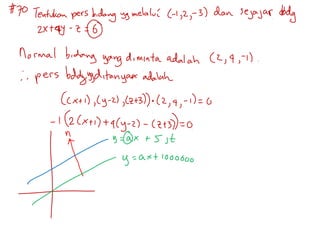 #70 Tentukan pers bidang yg melalui (-1,2,-3) dan sejajar bdg
2x+4y-z=6
Normal bidang yang diminta adalah (2,4,-1).
∴ pers bdg yg ditanyakan adalah
((x+1),(y-2),(z+3))•(2,4,-1)=0
-1(2(x+1)+4(y-2)-(z+3))=0
n
y=ax+5,t
y=ax+1000000